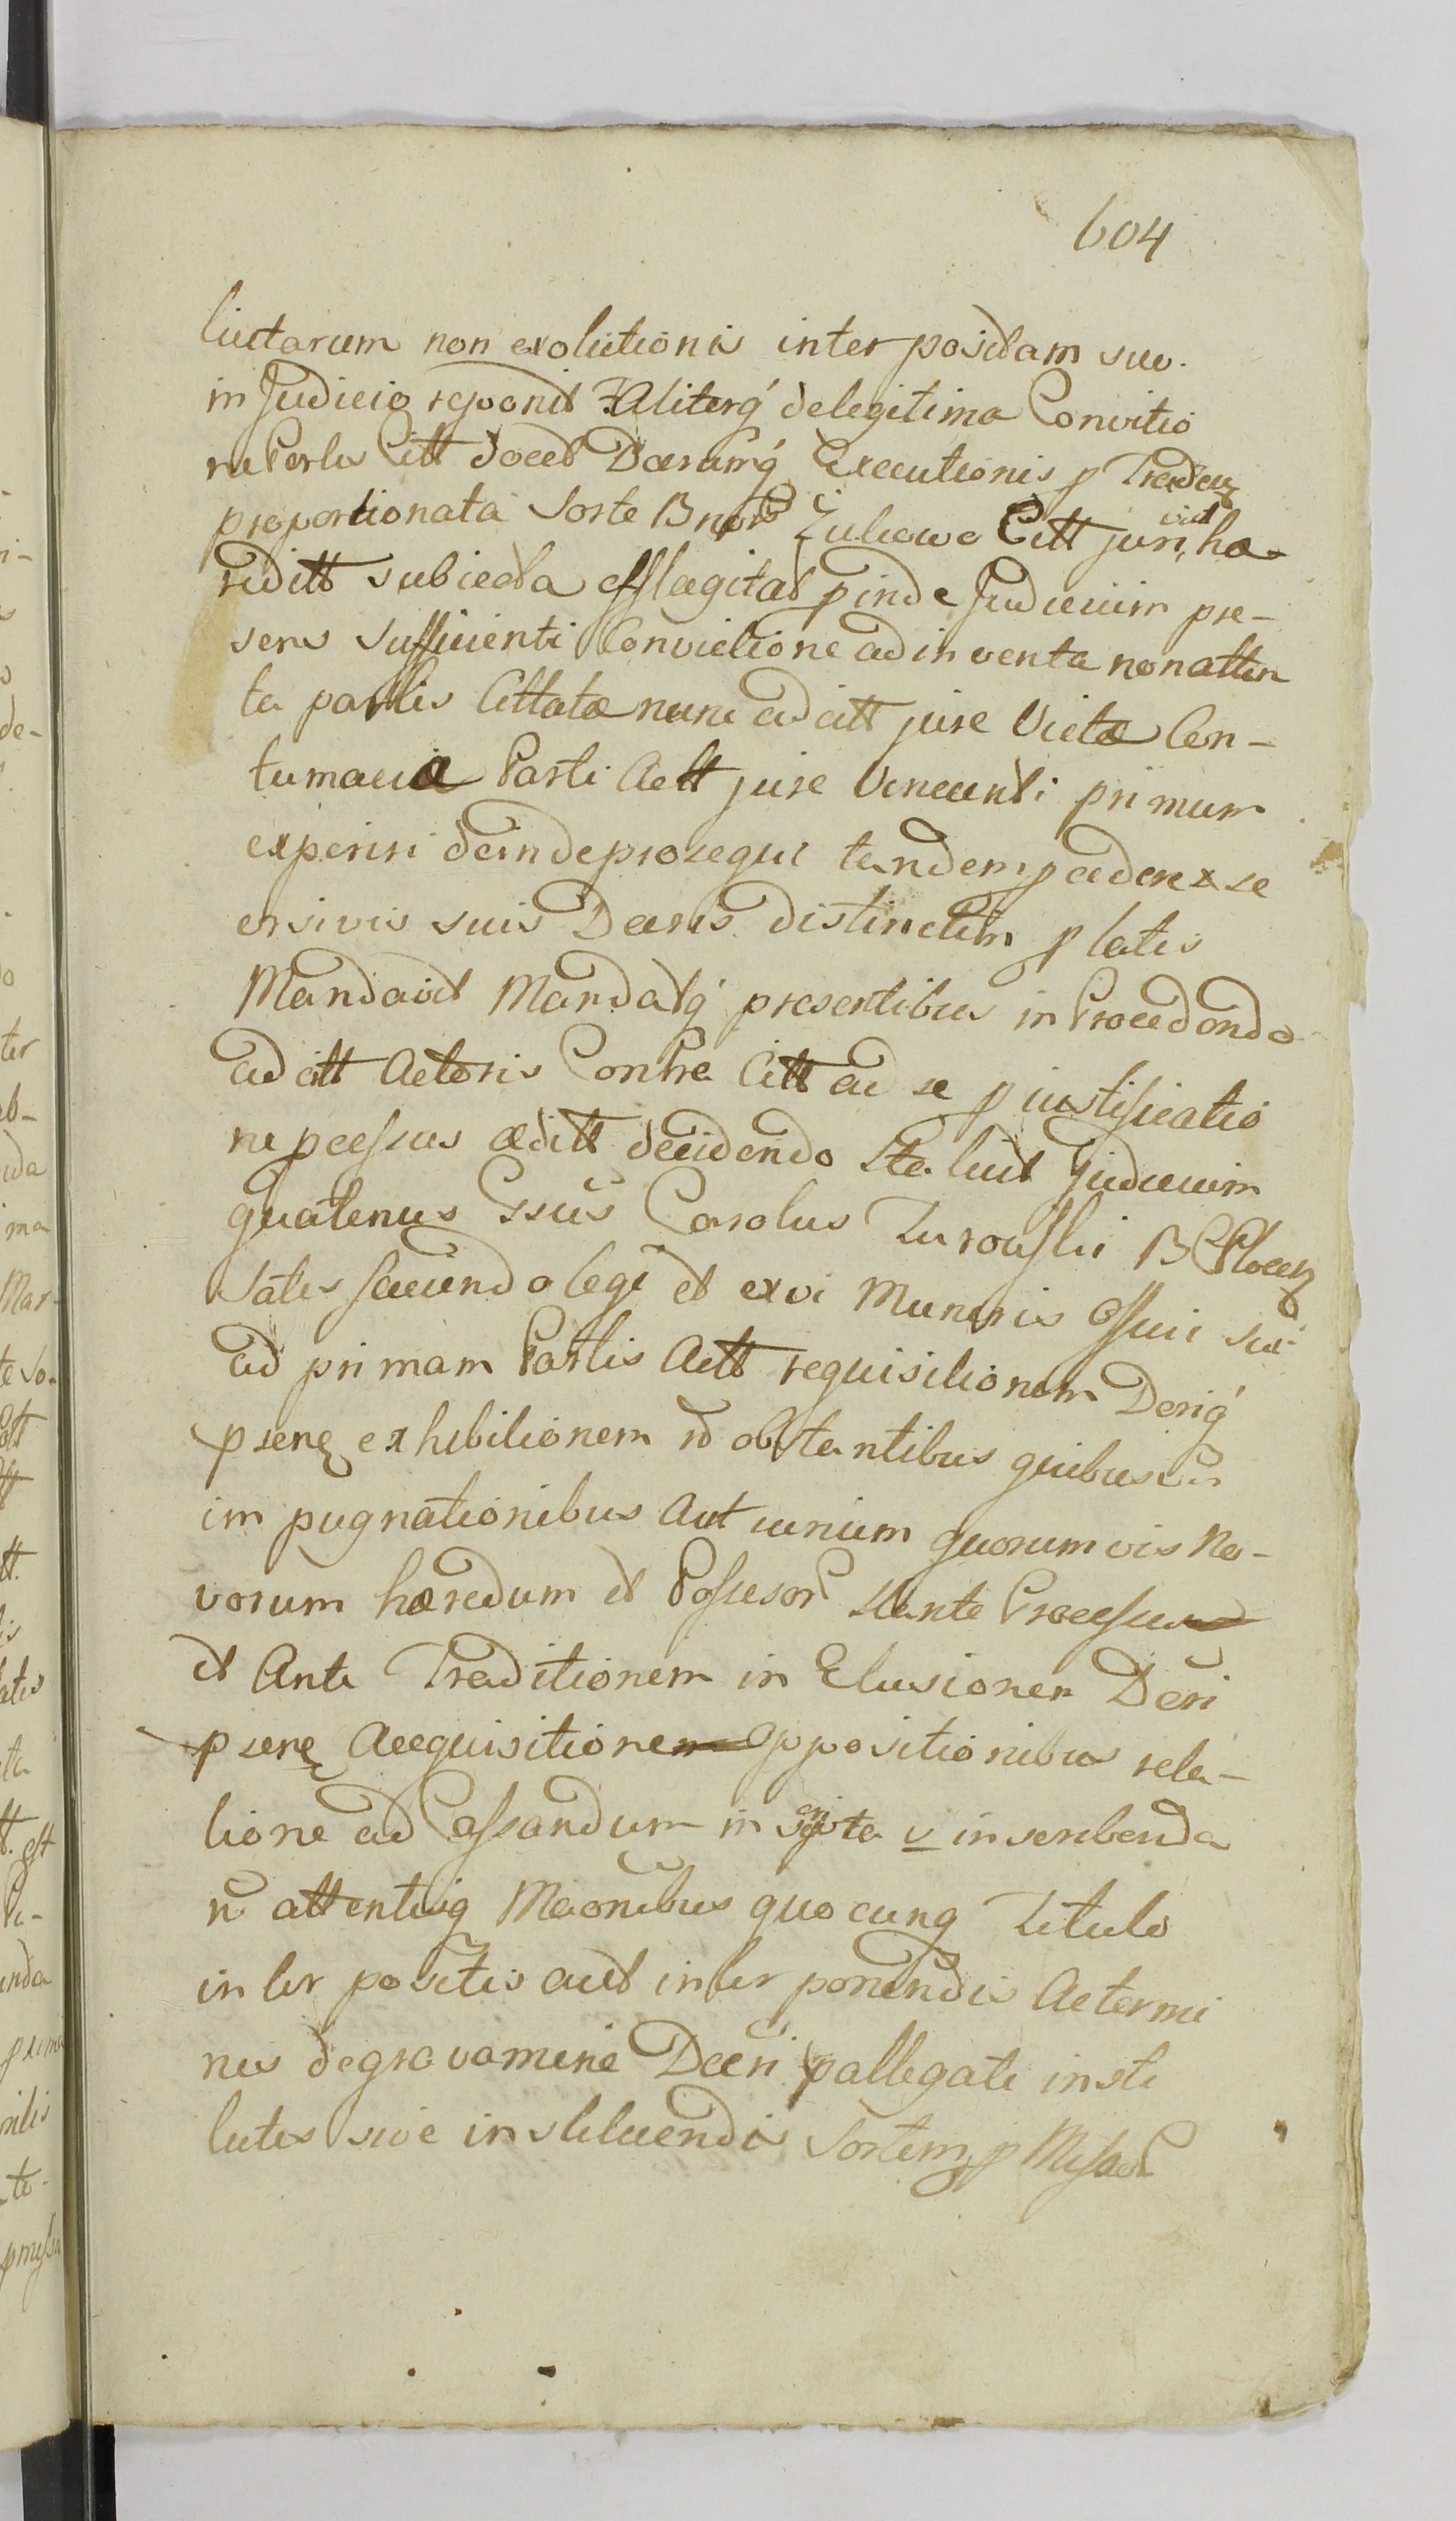 604
luctarum non exolutionis interpositam suo
in Judicio reponit Taliterq́ de legitima Convictio
ne Partis Citt docet Decrumq́ Executionis p Traden
proportionata Sorte Bnor Zulewo Citt juri vict hæ-
reditt subiecta efflagitat p inde Judicium pre-
sens Sufficienti Convictione ad inventa non atten
ta partis Cittatæ nunc ad citt jure Victæ Con-
tumacia Parti Actt jure Vincenti primum
experiri deinde prosequi tandem p cadere x se
ex sivis suis Decris distinctim p latis
Mandavit Mandatq́ presentibus in Procedendo
ad citt Actoris Contra Citt ad se p iustificatio
ne pcessus æditt decidendo Statuit Judicium
quatenus Gssus Carolus Turowski B C Plocen
Satis faciendo legi et ex vi Muneris Officii sui
ad primam Partis Actt requisitionem Deriq́
psene exhibitionem nō obstantibus quibusvis
impugnationibus Aut iurium quorumvis No-
vorum hæredum et Possesor stante Processu
et Ante Traditionem in Elusionem Decri
psene Acequisitionem Oppositionibus rela-
tione ad Cassandum inscripta v inscribenda
nō attentisq Motionibus quocunq Titulo
interpositis aut interponendis Ac termi
nis de gravamine Decri p allegati insti
tutis sive instituendis Sortem p Missar